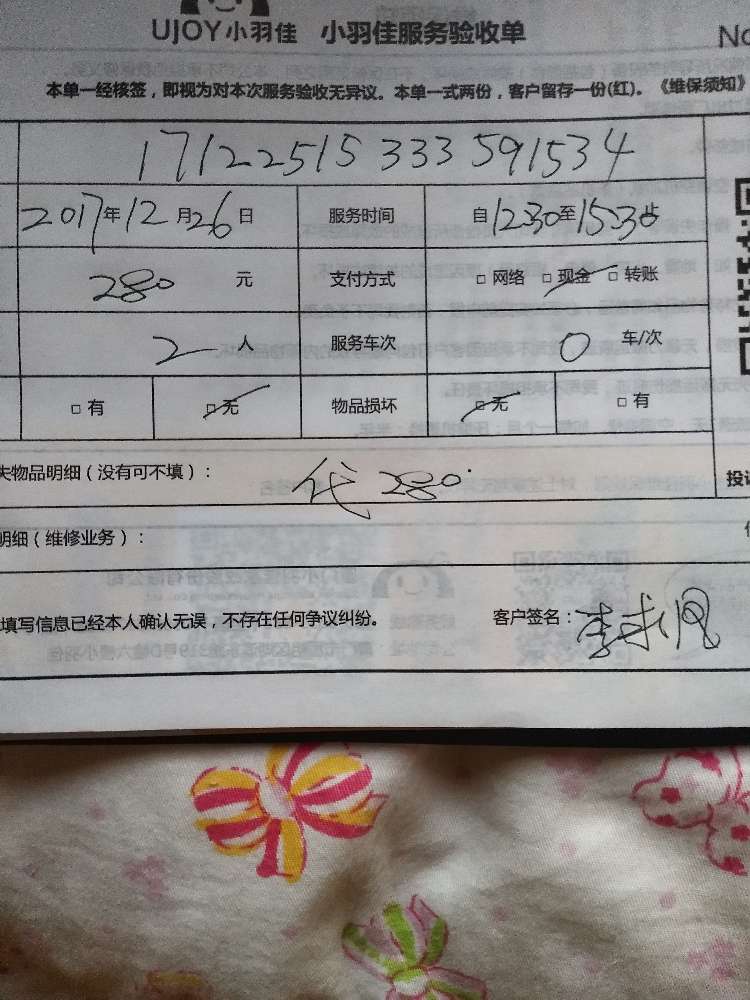 UJOY小羽佳 小羽佳服务验收单 No
本单一经核签，即视为对本次服务验收无异议。本单一式两份，客户留存一份(红)。《维保须知》
17122515333591534
2017年12月26日 服务时间 自1230至1530
280 元 支付方式 □ 网络 □ 现金 □ 转账
2 人 服务车次 0 车/次
□ 有 □ 无 物品损坏 □ 无 □ 有
失物品明细（没有可不填）： 代 280
投诉
明细（维修业务）：
填写信息已经本人确认无误，不存在任何争议纠纷。 客户签名： 李